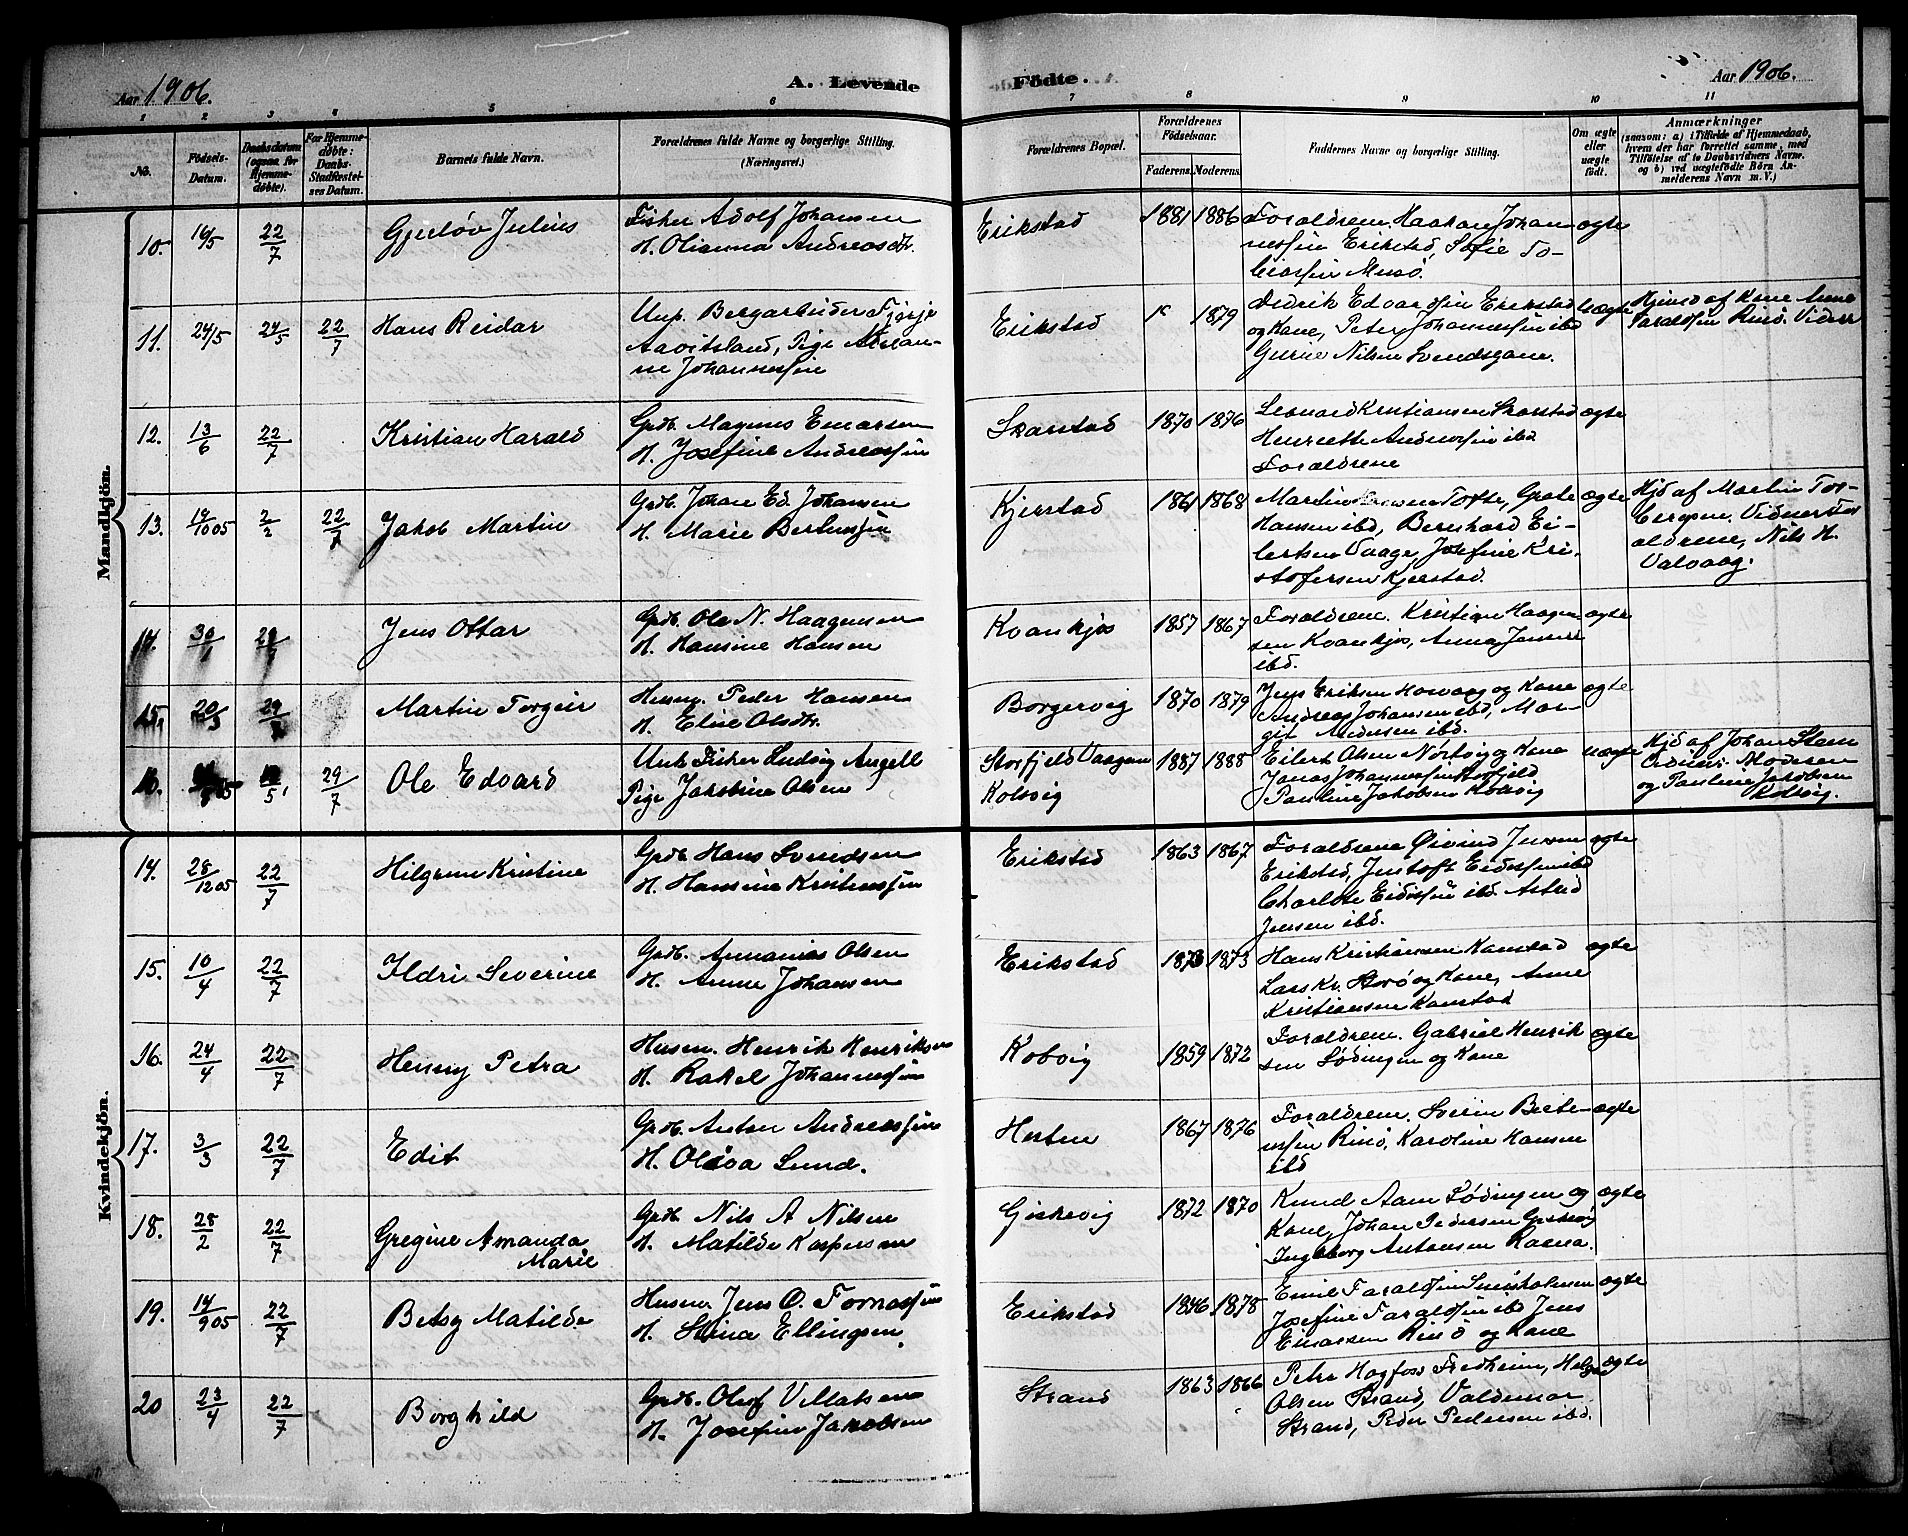 Aar 1906.
A. Levende
Födte.
Aar 1906.
1 2 3 4 5 6 7 8 9 10 11
No.
Födsels-Datum.
Daabsdatum (ogsaa for Hjemme-döbte).
For Hjemme-döbte: Daabs-Stadfæstel-ses Datum.
Barnets fulde Navn.
Forældrenes fulde Navne og borgerlige Stilling. (Næringsvei.)
Forældrenes Bopæl.
Forældrenes Födselsaar.
Faderens. Moderens.
Faddernes Navne og borgerlige Stilling.
Om ægte eller uægte födt.
Anmærkninger
(saasom: a) i Tilfælde af Hjemmedaab, hvem der har forrettet samme, med Tilföielse af to Daabsvidners Navne. og b) ved uægtefödte Börn Anmelderens Navn m. V.)
Mandkjön.
10. 16/5 22/7 Gjerløv Julius
Fisker Adolf Johansen
H. Olianna Andreasdt.
Erikstad 1881 1886
Forældrene. Haakon Johan-
nessen Erikstad, Sofie To-
biassen
ægte
11. 24/5 24/5 22/7 Hans Reidar
Ung. Bergarbeider
Aavitsland, Pige
Johannessen
Erikstad 1879
Didrik Edvardsen Erikstad
og Kone, Peter Johannessen ibd
Gurine Nilsen
uægte
Hjemd af Kone Anna
Taraldsen Rinø.
12. 13/6 22/7 Kristian Harald
Grdb. Magnus Enarsen
H. Josefine Andreassen
Skarstad 1870 1876
Leonard Kristiansen Skarstad
Henriette Andreassen ibd
Forældrene
ægte
13. 19/10 05 2/2 22/7 Jakob Martin
Grdb. Johan Ed. Johansen
H. Marie Berthensen
Kjerstad 1861 1868
Martin Tofte, Grete
Hansen ibd, Bernhard Ei-
lertsen Vaage, Josefine Kri-
stofersen Kjerstad.
ægte
Hjd af Martin Tor-
bergsen. Vidner For-
ældrene, Nils H.
Valvaag.
14. 30 29 Jens Ottar
Grdb. Ole N. Haagensen
H. Hansine Hansen
Kvankjos 1857 1867
Forældrene. Kristian Haagen-
sen Kvankjos, Anna Jensen
ibd.
ægte
15. 20/5 29 Martin Torgeir
Husm. Peder Hansen
H. Elise Olsdtr.
Borgervig 1870 1879
Jens Eriksen og Kone
Andreas Johansen ibd, Mar-
git Andersen ibd.
ægte
16. 05 29/7 Ole Edvard
Unk. Fisker Ludvig Angell
Pige Jakobine Olsen
Storfjeld Vaagan
Kobvig
1887 1888
Eilert Olsen og Kone
Jonas Johannessen Storfjeld
Pauline Jakobsen Kobvig
uægte
Hjd af Johan Steen
Vidner: Moderen
og Pauline Jakobsen
Kobvig.
Kvindekjön.
14. 28/12 05 22/7 Hilgunn Kristine
Grdb. Hans Svendsen
H. Hansine Kristensen
Erikstad 1863 1867
Forældrene Øivind Jensen
Erikstad, Justoft Eidissen ibd
Charlotte Eidissen ibd. Astrid
Jensen ibd.
ægte
15. 10/4 22/7 Ildri Severine
Grdb. Annanias Olsen
H. Anna Johansen
Erikstad 1873 1873
Hans Kristiansen Kanstad
Lars Kr. Storø og Kone, Anne
Kristiansen Kanstad
ægte
16. 24/4 22/7 Henny Petra
Husm. Henrik Henriksen
H. Rakel Johannessen
Kobvig 1859 1872
Forældrene. Gabriel Henrik-
sen Lødingen og Kone
ægte
17. 3/3 22/7 Edit
Grdb. Anton Andreassen
H. Oleva Lund.
Hesten 1867 1876
Forældrene. Berte-
ussen Rinø, Karoline Hansen
ibd
ægte
18. 28/2 22/7 Gregine Amanda
Marie
Grdb. Nils A Nilsen
H. Matilde Kaspersen
Giskevig 1872 1870
Knud Aam Lødingen og
Kone, Johan Pedersen Giskevig
Ingeborg Antonsen
ægte
19. 14/9 05 22/7 Betsy Matilde
Husm. Jens O. Tornassen
H. Stina Ellingsen.
Erikstad 1846 1878
Emil Taraldsen
Josefine Taraldsen ibd Jens
Enarsen Rinø og Kone
ægte
20 23/4 22/7 Borghild
Grdb. Olof Villatsen
H. Josefine Jakobsen
Strand 1863 1866
Petra Hogfoss Fredheim, Helga
Olsen Strand, Valdemar
Strand, Peder Pedersen ibd.
ægte